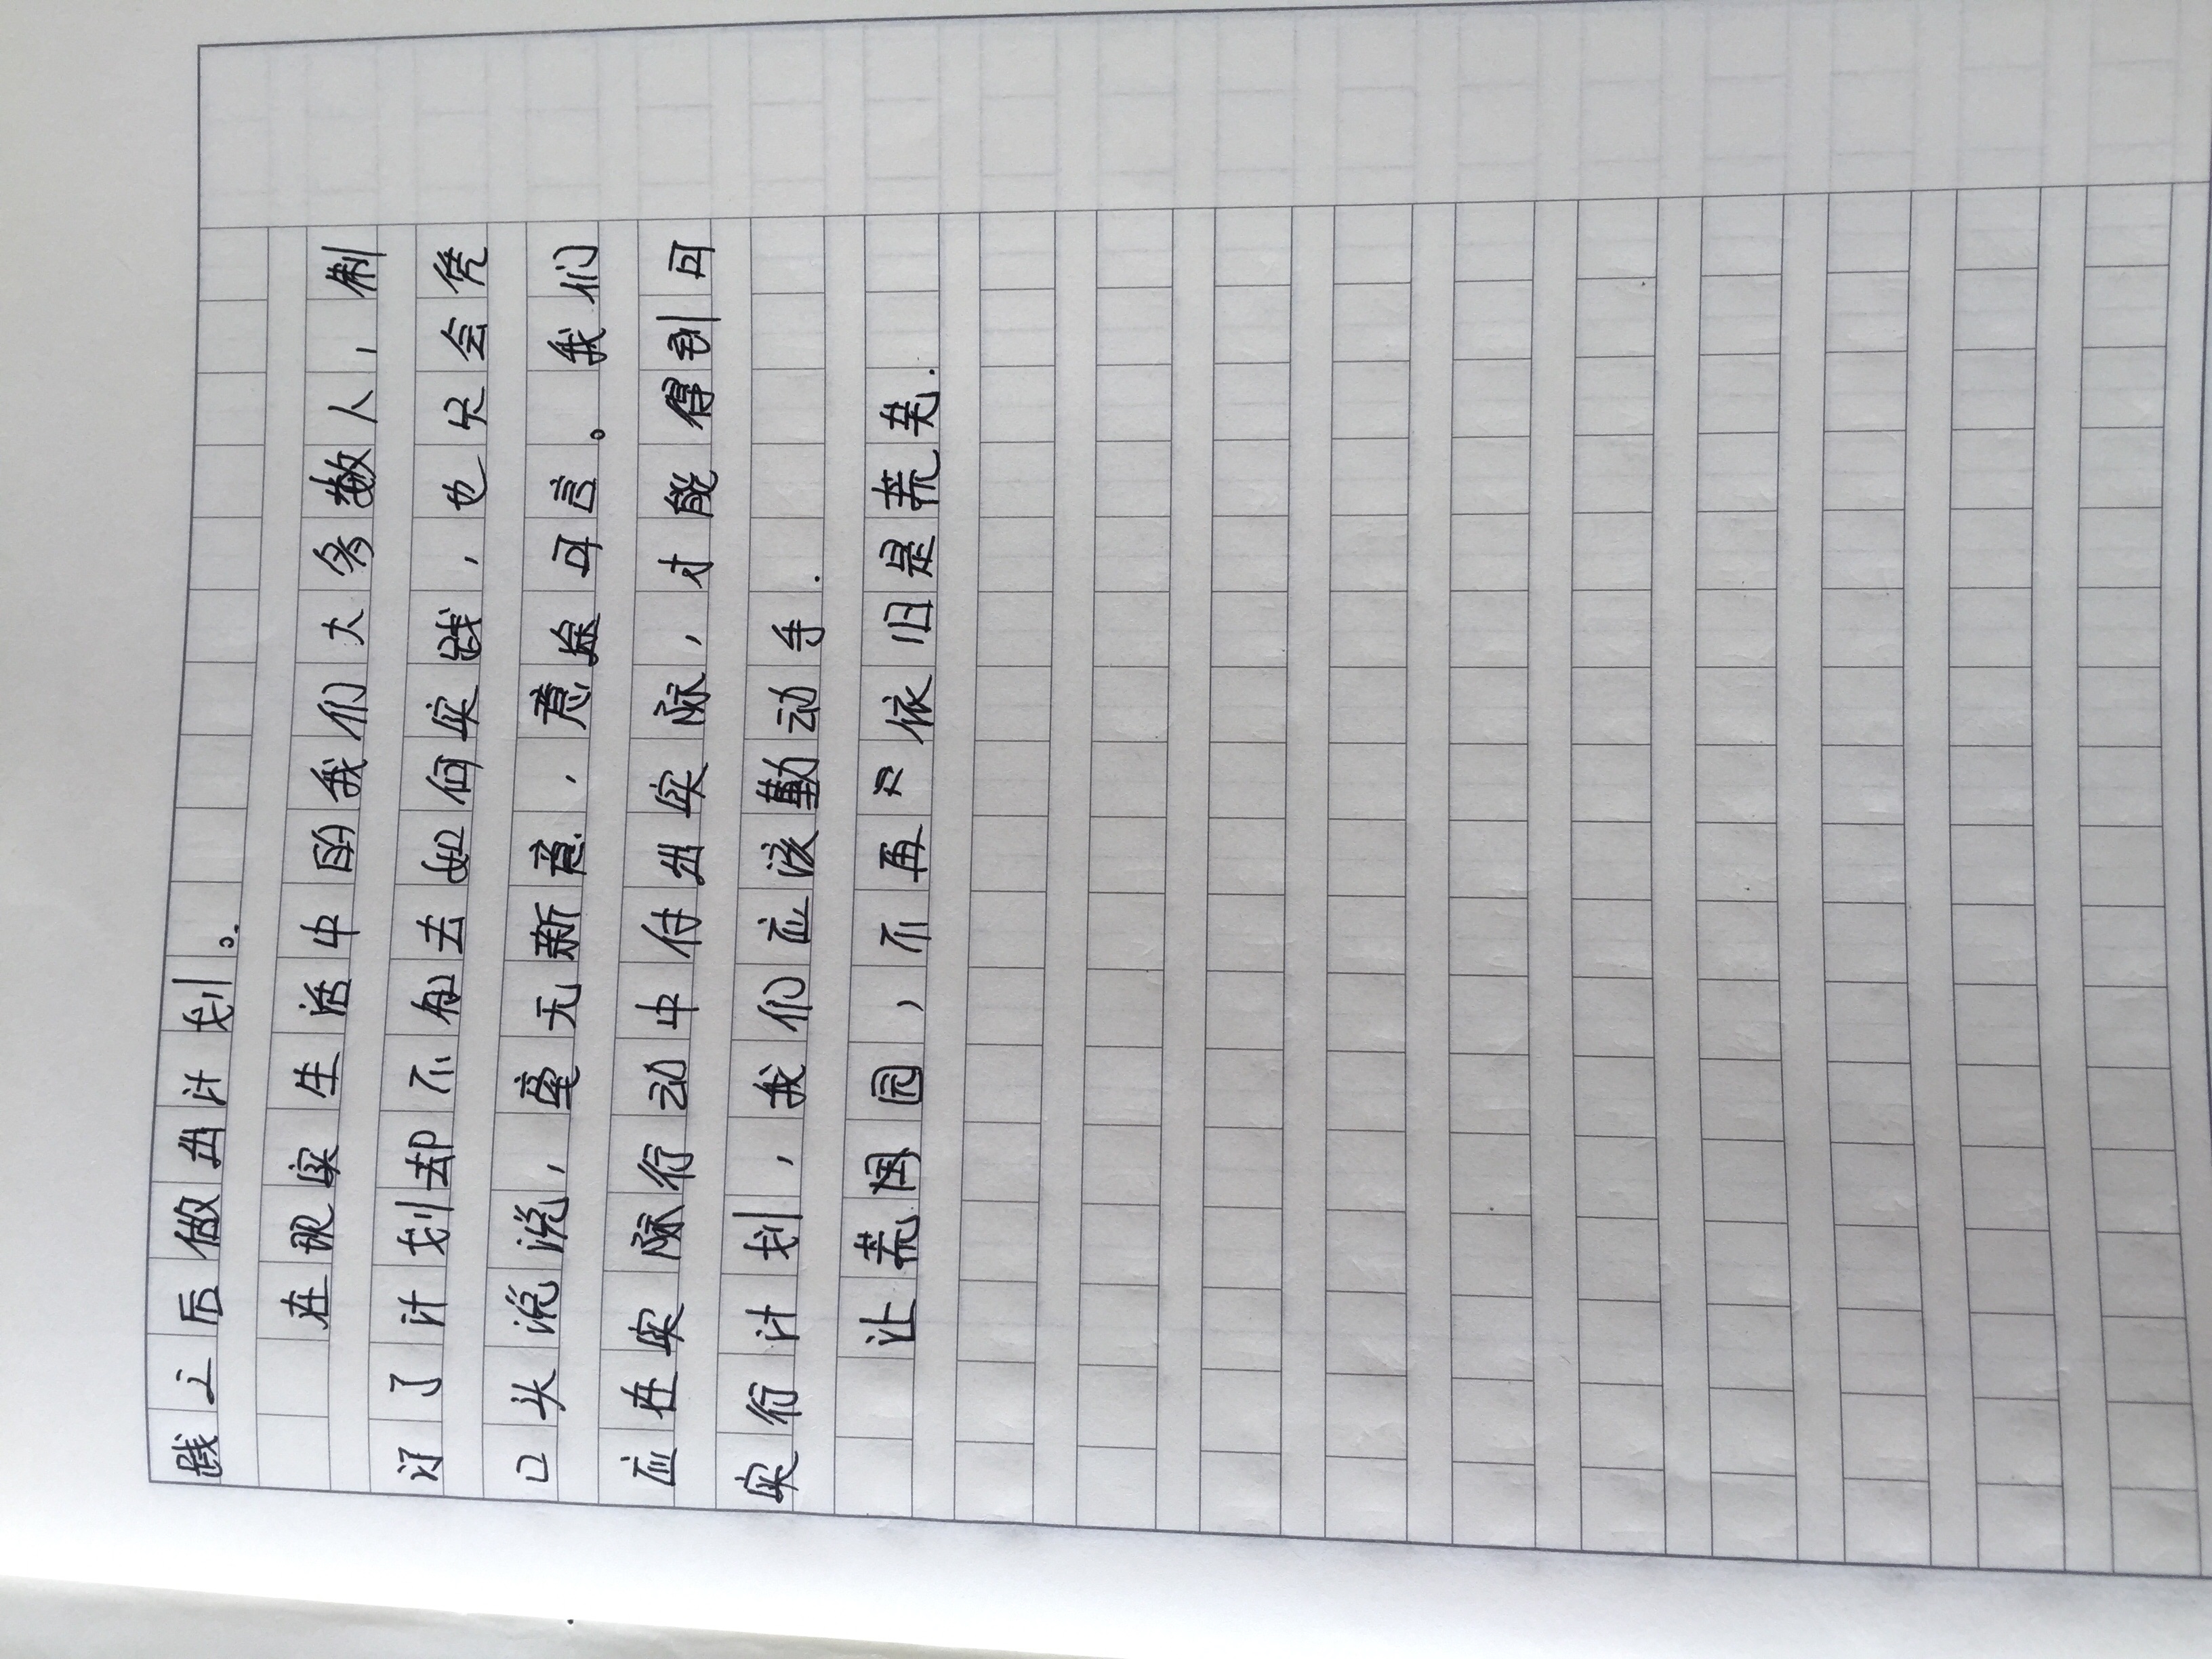 践之后做出计划。
在现实生活中的我们大多数人，制
订了计划却不知去如何实践，也只会凭
口头说说，毫无新意，意途可言。我们
应在实际行动中付出实际，才能得到可
实行计划，我们应该勤动手.
让荒园园，不再只依旧是荒芜.